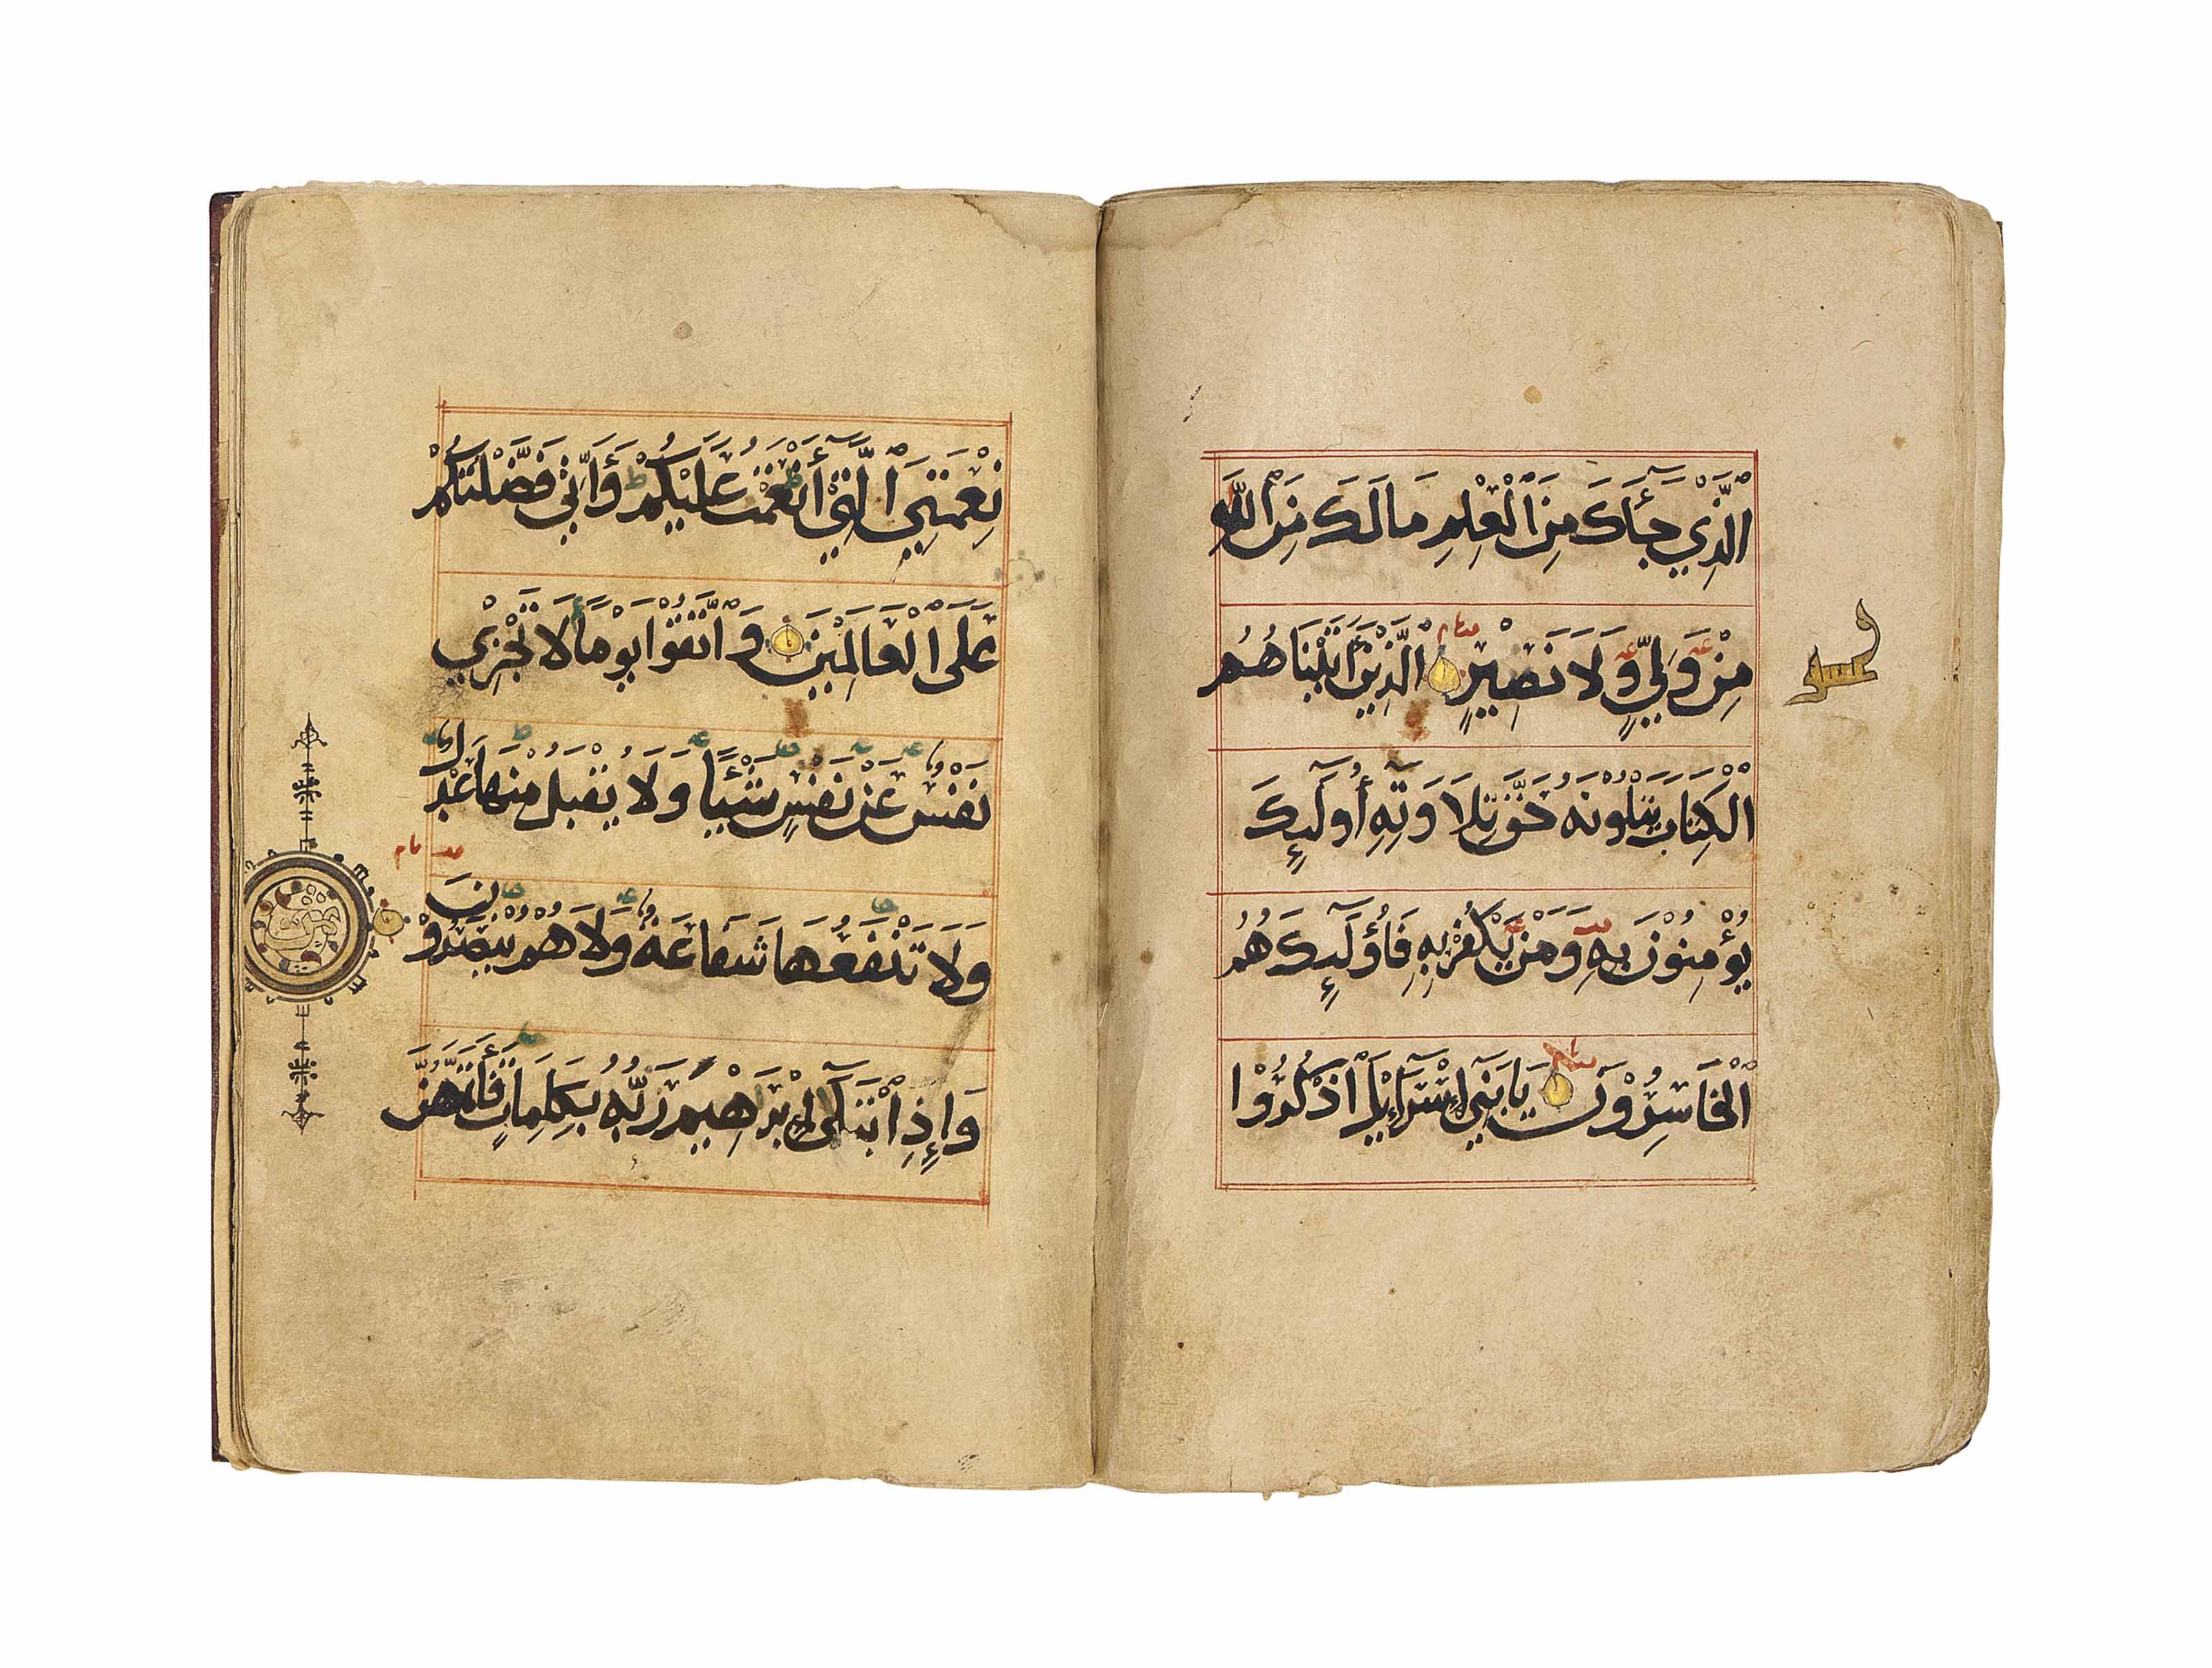 الَّذِي جَآءَكَ مِنَ الْعِلْمِ مَا لَكَ مِنَ اللَّهِ
مِنْ وَلِيٍّ وَلَا نَصِيْرٍ الَّذِيْنَ اٰتَيْنَاهُمُ
الْكِتَابَ يَتْلُونَهُ حَقَّ تِلَاوَتِهِ أُولَٓئِكَ
يُؤْمِنُوْنَ بِهِ وَمَنْ يَكْفُرْ بِهِ فَأُولَٓئِكَ هُمُ
الْخَاسِرُوْنَ يَا بَنِيٓ إِسْرَآئِيْلَ اذْكُرُوْا
نِعْمَتِيَ الَّتِيٓ أَنْعَمْتُ عَلَيْكُمْ وَأَنِّي فَضَّلْتُكُمْ
عَلَى الْعَالَمِيْنَ وَاتَّقُوْا يَوْمًا لَا تَجْزِيْ
نَفْسٌ عَنْ نَفْسٍ شَيْئًا وَلَا يُقْبَلُ مِنْهَا عَدْلٌ
وَلَا تَنْفَعُهَا شَفَاعَةٌ وَلَا هُمْ يُنْصَرُوْنَ
وَإِذِ ابْتَلَىٓ إِبْرَاهِيْمَ رَبُّهُ بِكَلِمَاتٍ فَأَتَمَّهُنَّ